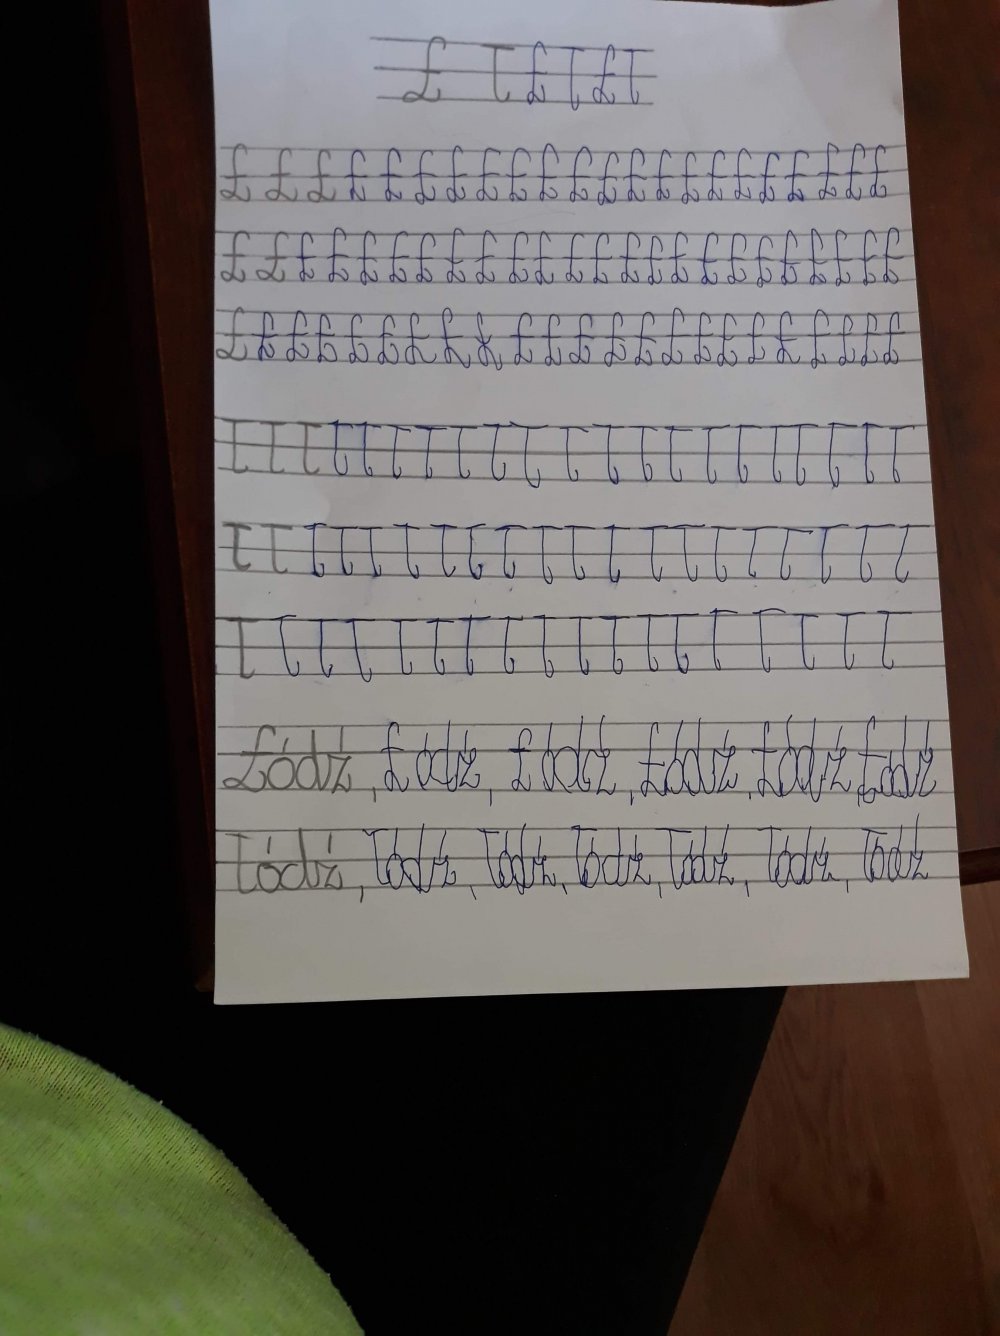 Ł Ł Ł Ł Ł Ł
Ł Ł Ł Ł Ł Ł Ł Ł Ł Ł Ł Ł Ł Ł Ł Ł Ł Ł Ł Ł Ł Ł
Ł Ł Ł Ł Ł Ł Ł Ł Ł Ł Ł Ł Ł Ł Ł Ł Ł Ł Ł Ł Ł Ł Ł Ł
Ł Ł Ł Ł Ł Ł Ł Ł Ł Ł Ł Ł Ł Ł Ł Ł Ł Ł Ł Ł Ł Ł Ł
Ł Ł Ł Ł Ł Ł Ł Ł Ł Ł Ł Ł Ł Ł Ł Ł Ł Ł Ł Ł Ł
Ł Ł Ł Ł Ł Ł Ł Ł Ł Ł Ł Ł Ł Ł Ł Ł Ł Ł Ł Ł
Ł Ł Ł Ł Ł Ł Ł Ł Ł Ł Ł Ł Ł Ł Ł Ł Ł Ł
Łódź, Łódź, Łódź, Łódź, Łódź, Łódź
Łódź, Łódź, Łódź, Łódź, Łódź, Łódź, Łódź